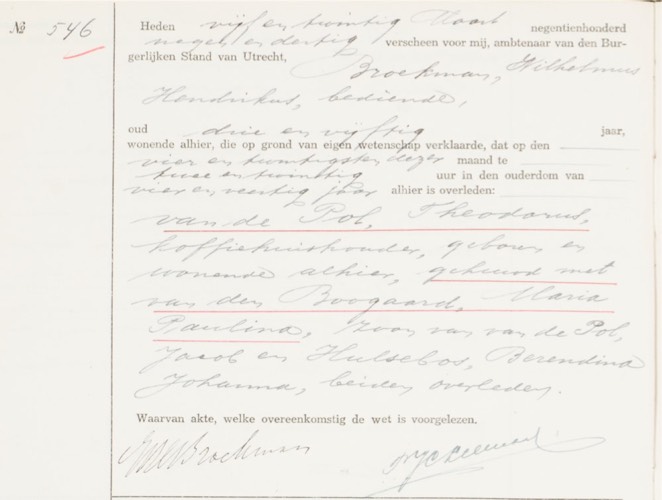 № 546
Heden vijf en twintig Maart negentienhonderd
negen en dertig verscheen voor mij, ambtenaar van den Bur-
gerlijken Stand van Utrecht,
Broekman, Wilhelmus
Hendrikus, bediende,
oud drie en vijftig jaar,
wonende alhier, die op grond van eigen wetenschap verklaarde, dat op den
vier en twintigsten dezer maand te
twee en twintig uur in den ouderdom van
vier en veertig jaar alhier is overleden:
van de Pol, Theodorus,
koffiehuishouder, geboren en
wonende alhier, gehuwd met
van den Boogaard, Maria
Paulina, zoon van van de Pol,
Jacob en Hulsebos, Berendina
Johanna, beiden overleden.
Waarvan akte, welke overeenkomstig de wet is voorgelezen.
Broekman